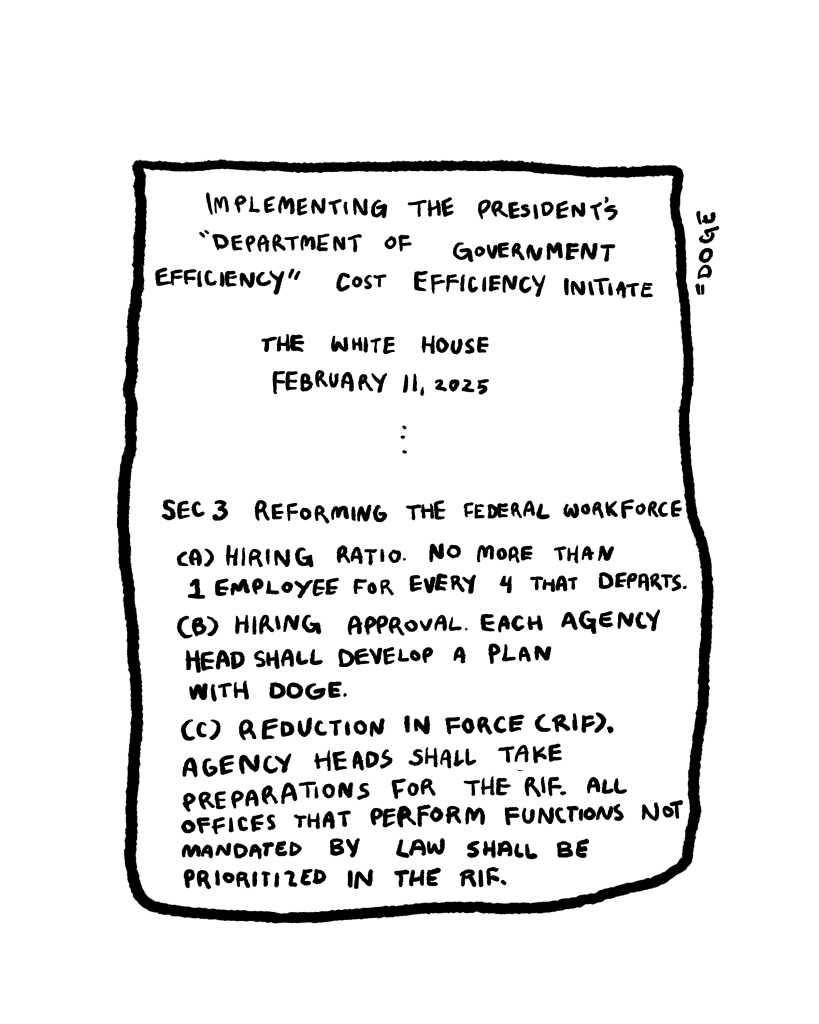 IMPLEMENTING THE PRESIDENT'S
"DEPARTMENT OF GOVERNMENT
EFFICIENCY" COST EFFICIENCY INITIATE
THE WHITE HOUSE
FEBRUARY 11, 2025
⋮
SEC 3 REFORMING THE FEDERAL WORKFORCE
(A) HIRING RATIO. NO MORE THAN
1 EMPLOYEE FOR EVERY 4 THAT DEPARTS.
(B) HIRING APPROVAL. EACH AGENCY
HEAD SHALL DEVELOP A PLAN
WITH DOGE.
(C) REDUCTION IN FORCE (RIF).
AGENCY HEADS SHALL TAKE
PREPARATIONS FOR THE RIF. ALL
OFFICES THAT PERFORM FUNCTIONS NOT
MANDATED BY LAW SHALL BE
PRIORITIZED IN THE RIF.
=DOGE